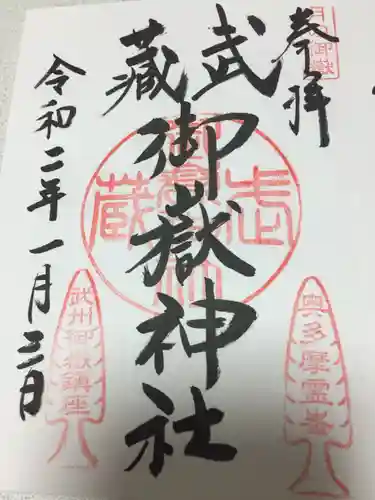 奉拝
武蔵
御嶽神社
令和二年一月三日
奥多摩霊峯
武州御嶽鎮座